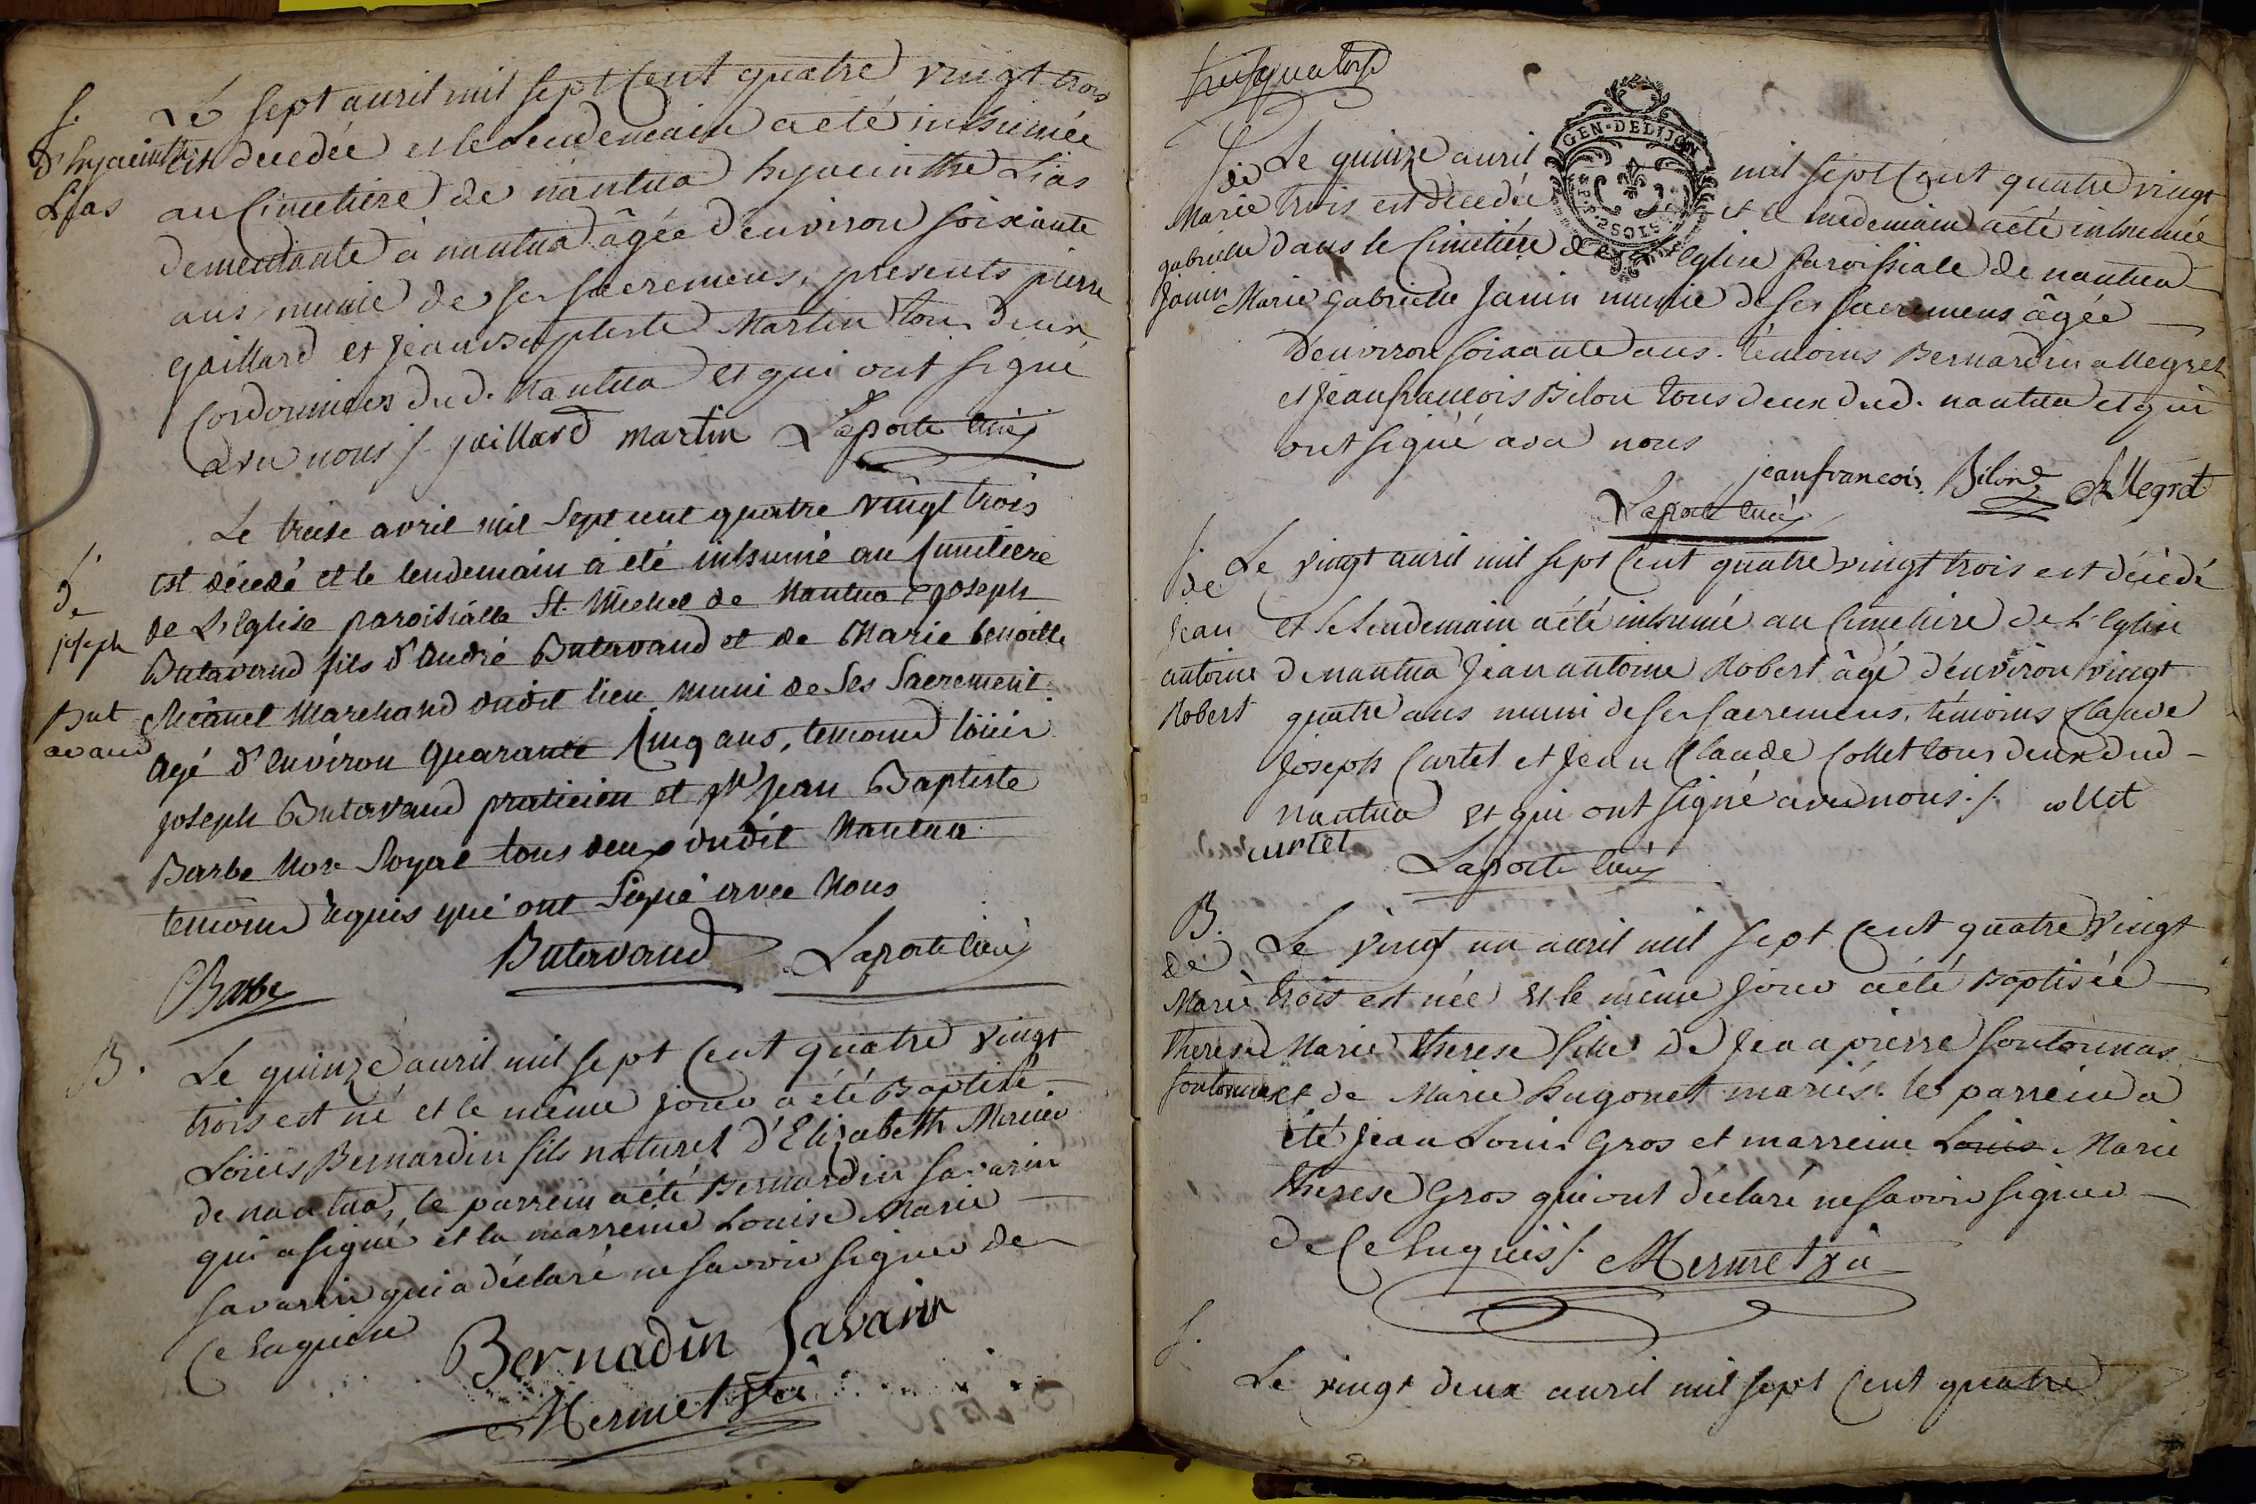 S.
d'hyacinthe
Lias
Le sept avril mil sept cent quatre vingt trois
est decedée et le lendemain a eté inhumée
au Cimetiere de nantua hyacinthe Lias
demeurante à nantua âgée d'environ soixante
ans munie de ses sacremens, presents pierre
gaillard et jean baptiste Martin tous deux
Cordonniers dud. Nantua et qui ont signé
avec nous ./. gaillard martin Laporte curé
S.
de
joseph
But
avaud
Le treise avril mil sept cent quatre vingt trois
est décedé et le lendemain à été inhumé au Cimetiere
de L'Eglise paroissialle St. Michel de Nantua joseph
Butavand fils d'André Butavand et de Marie benoitte
Micanel Marchand dudit lieu muni de Ses Sacrement
agé d'environ quarante Cinq ans, temoins loüis
joseph Butavand praticien et Jean Baptiste
Barbe Nore Royal tous deux dudit Nantua
temoins requis qui ont Signé avec Nous
Butavand Laporte curé
Barbe
B.
Le quinze avril mil sept cent quatre vingt
trois est né et le même jour a été Baptisé
Loüis Bernardin fils naturel d'Elizabeth Mercier
de nantua, le parrein a été Bernardin Savarin
qui a signé et la marreine Louise Marie
Savarin qui a déclaré ne savoir signer de
Ce enquise
Bernadin Savarin
Mermet vic
trisquatorse
GEN·DE DIJON
S.
de
Marie
gabrielle
Janin
Le quinze avril mil sept cent quatre vingt
trois est decedée et le lendemain a été inhumée
dans le Cimetière de l'Eglise paroissiale de nantua
Marie gabrielle Janin munie de ses sacremens âgée
d'environ soixante ans. témoins Bernardin allegret
et Jean francois Bilon tous deux dud. nantua et qui
ont signé avec nous
jean francois Bilon Allegret
Laporte curé
S.
de
Jean
antoine
Robert
Le vingt avril mil sept cent quatre vingt trois est décédé
et le lendemain a été inhumé au Cimetiere de L'Eglise
de nantua Jean antoine Robert âgé d'environ vingt
quatre ans muni de ses sacremens, témoins Claude
Joseph Curtet et Jean Claude Collet tous deux dud
nantua et qui ont signé avec nous ./. collet
curtet
Laporte curé
B.
de
Marie
therese
fontonnas
Le vingt un avril mil sept cent quatre vingt
trois est née et le même jour a été Baptisée
Marie therese fille de Jean pierre fontonnas
et de Marie hugonet mariés. le parrein a
été Jean Louis Gros et marreine Louis Marie
therese Gros qui ont déclaré ne savoir signer
de Ce Enquis ./. Mermet vic
S.
Le vingt deux avril mil sept cent quatre